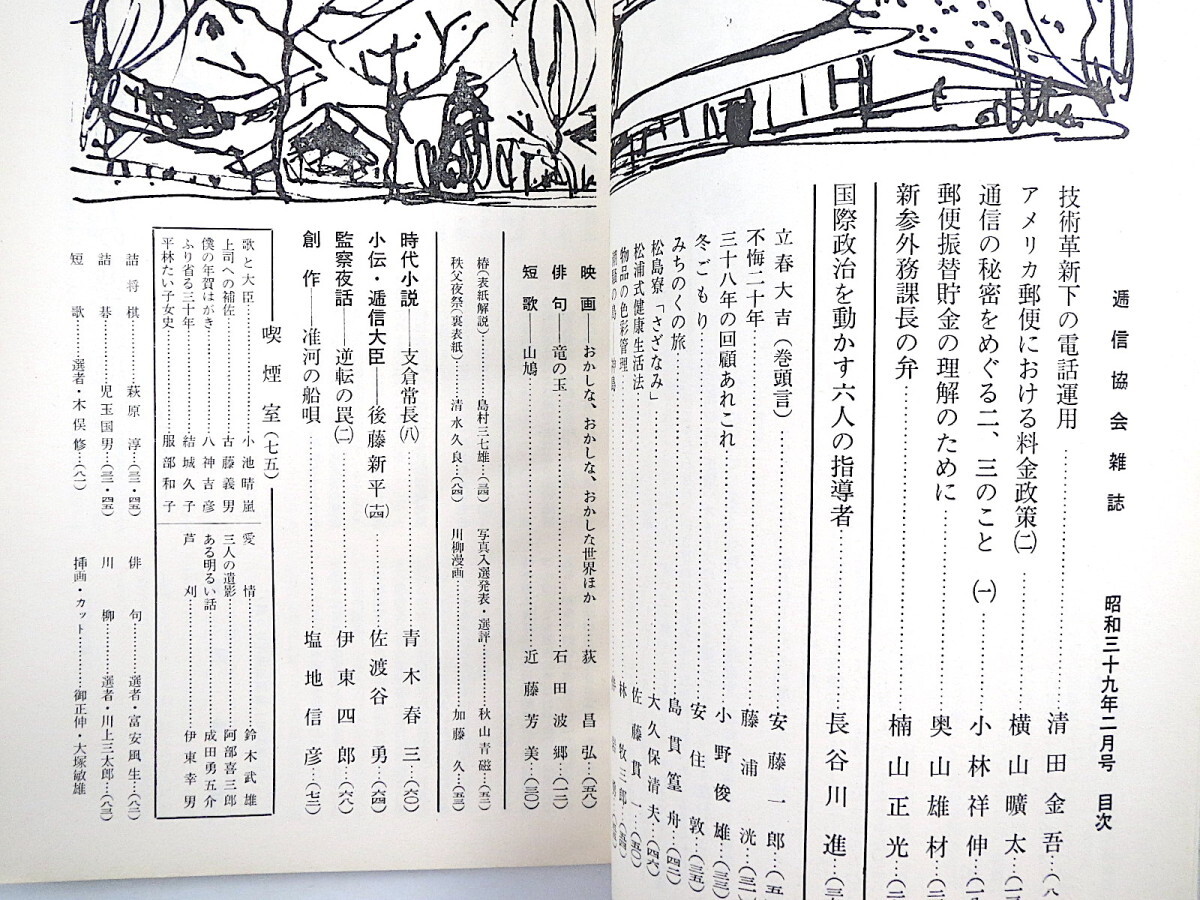 逓信協会雑誌　昭和三十九年二月号　目次
技術革新下の電話運用……清田金吾…(八
アメリカ郵便における料金政策(二)……横山曠太…(一
通信の秘密をめぐる二、三のこと(一)……小林祥伸…(一
郵便振替貯金の理解のために……奥山雄材…(二
新参外務課長の弁……楠山正光…(二
国際政治を動かす六人の指導者……長谷川進…(三
立春大吉(巻頭言)……安藤一郎…(五
不悔二十年……藤浦洸…(三一
三十八年の回顧あれこれ……小野俊雄…(三三)
冬ごもり……安住敦…(三五)
みちのくの旅……島貫篁舟…(四二)
松島寮「さざなみ」……大久保清夫…(四六)
松浦式健康生活法……佐藤貫一…(五〇)
物品の色彩管理……林牧三郎
映画――おかしな、おかしな、おかしな世界ほか……荻昌弘…(五八)
俳句――竜の玉……石田波郷…(一二)
短歌――山鳩……近藤芳美…(三〇)
椿(表紙解説)……島村三七雄…(三四)
写真入選発表・選評……秋山青磁…(五二)
秩父夜祭(裏表紙)……清水久良…(八四)
川柳漫画……加藤久…(五三)
時代小説――支倉常長(八)……青木春三…(六〇)
小伝・逓信大臣――後藤新平(十四)……佐渡谷勇…(六四)
監察夜話――逆転の罠(二)……伊東四郎…(六八)
創作――准河の船唄……塩地信彦…(七三)
喫煙室(七五)
歌と大臣……小池晴嵐
上司への補佐……古藤義男
僕の年賀はがき……八神吉彦
ふり省る三十年……結城久子
平林たい子女史……服部和子
愛情……鈴木武雄
三人の遺影……阿部喜三郎
ある明るい話……成田勇五介
芦刈……伊東幸男
詰将棋……萩原淳…(三三・四五)
俳句……選者・富安風生…(八二)
詰碁……児玉国男…(三三・四五)
川柳……選者・川上三太郎…(八三)
短歌……選者・木俣修…(八一)
挿画・カット……御正伸・大塚敏雄